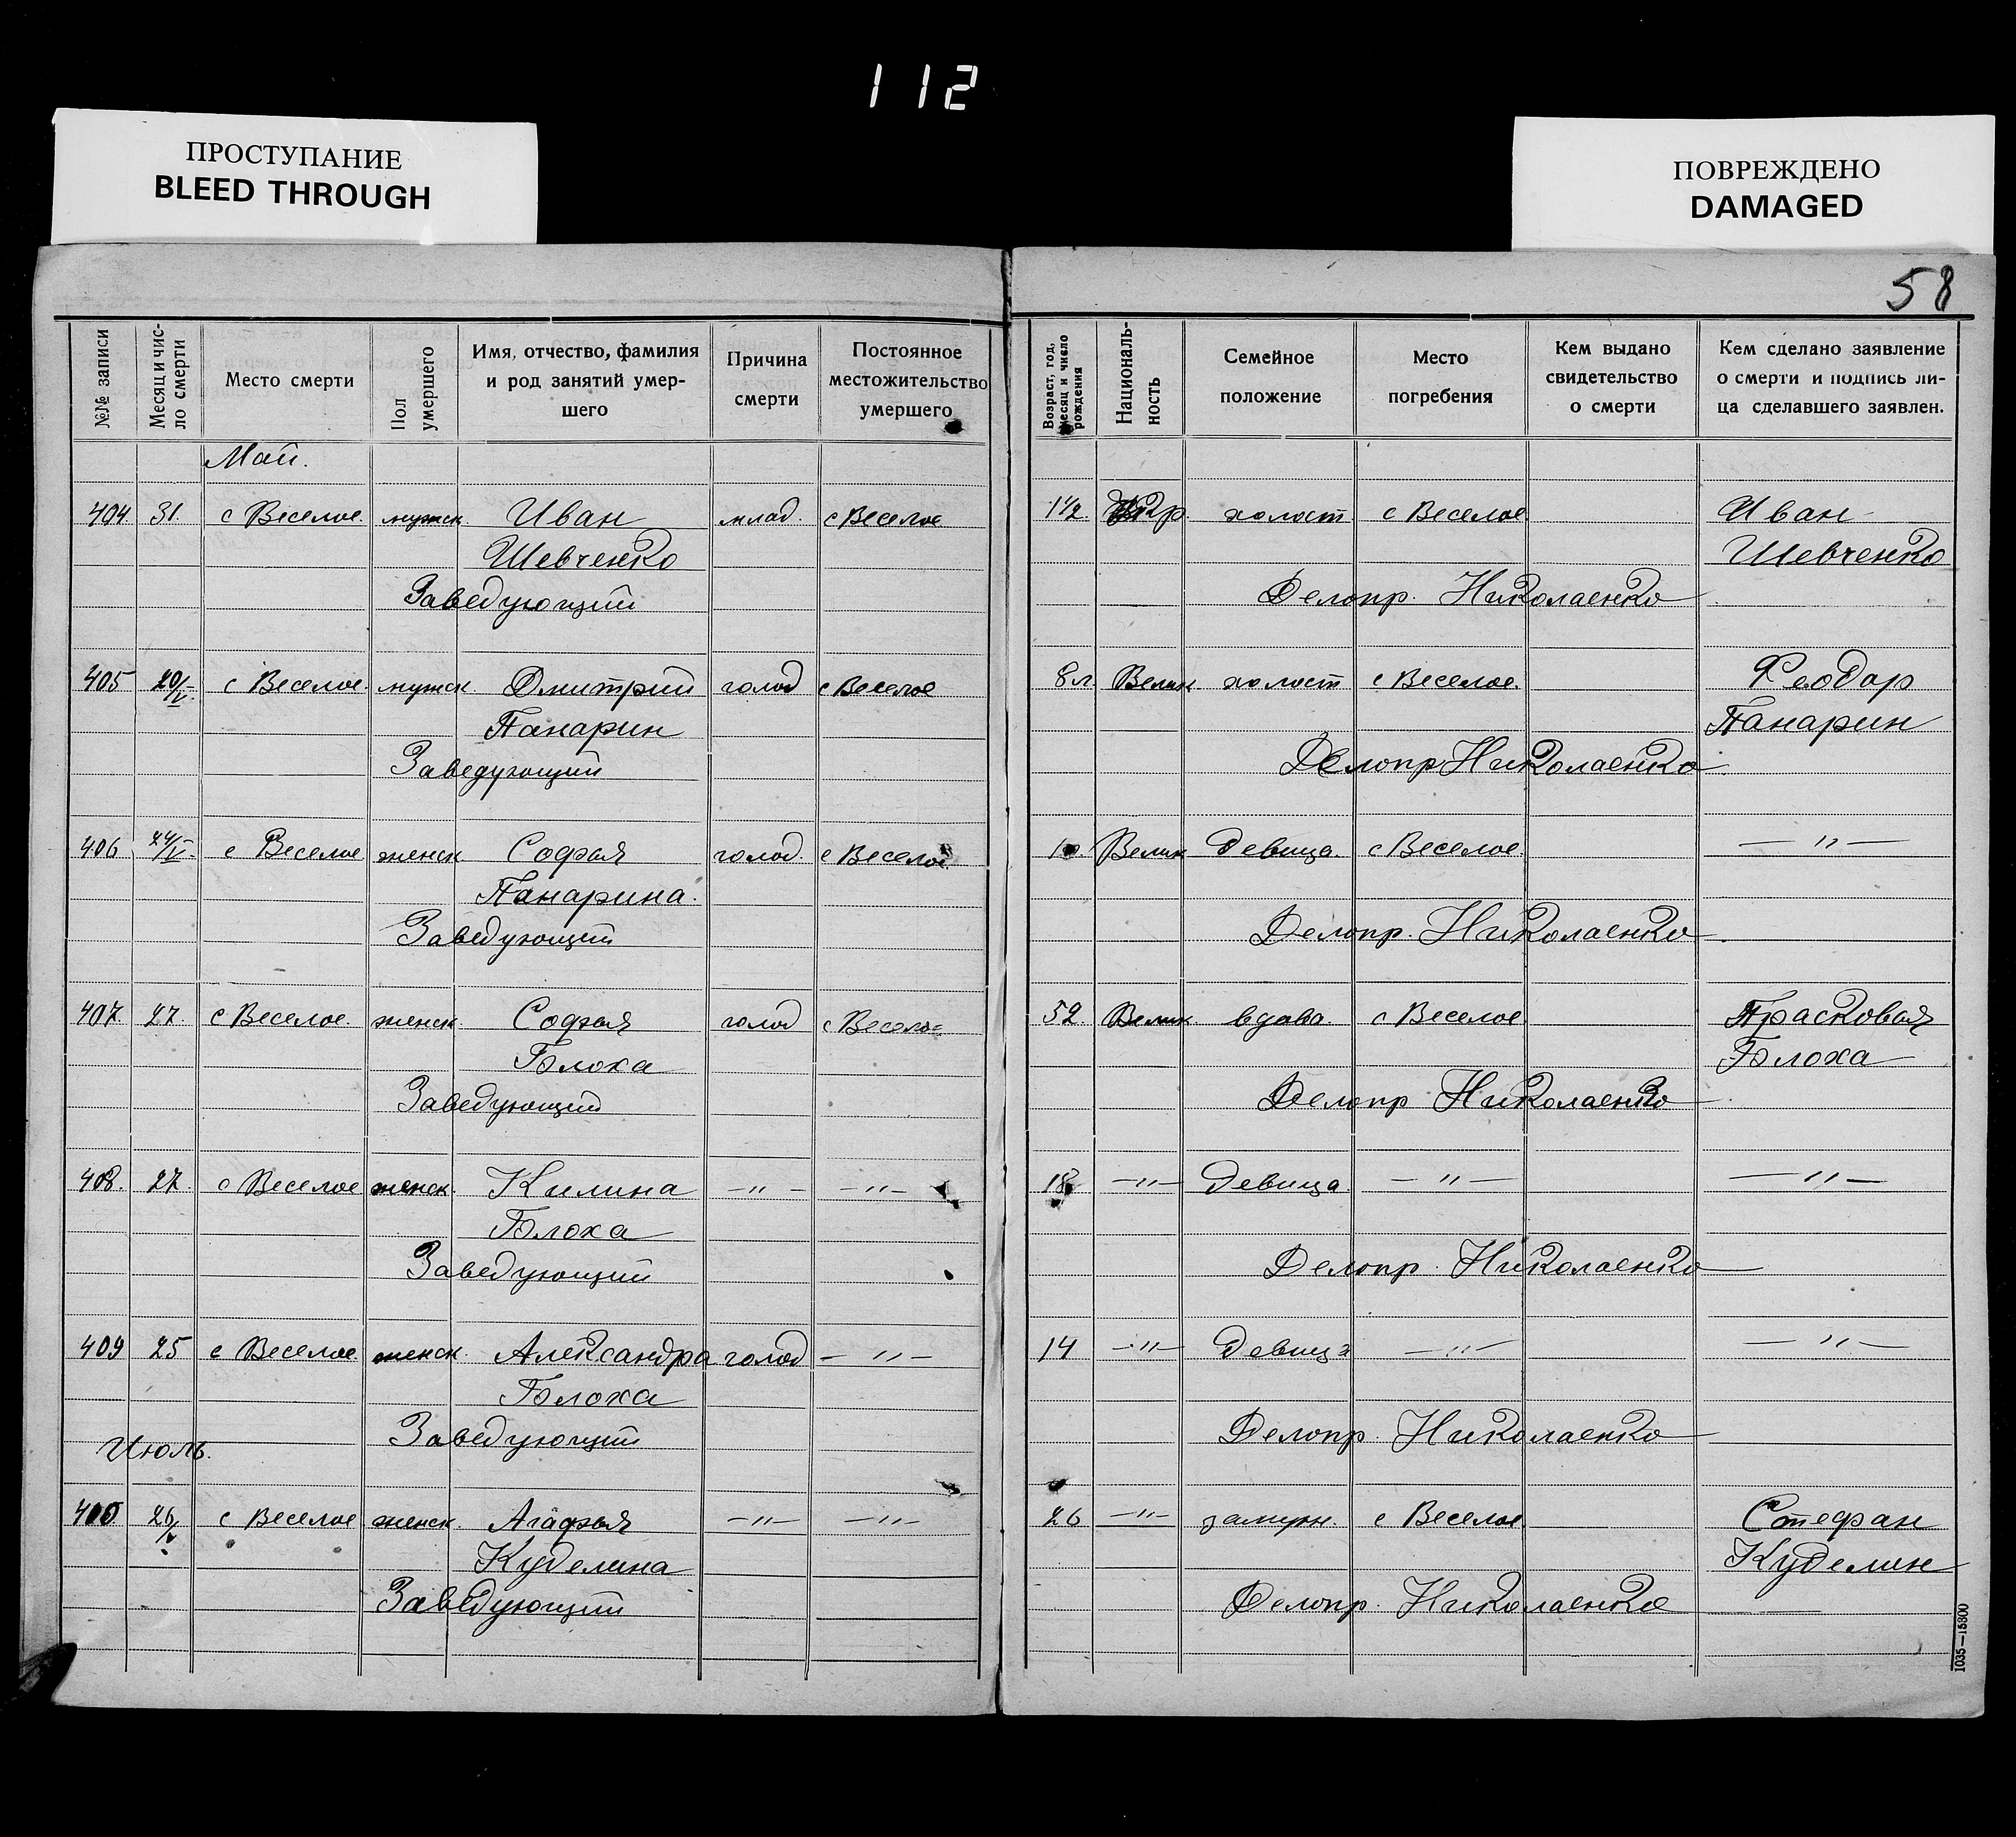 112
ПРОСТУПАНИЕ
BLEED THROUGH
ПОВРЕЖДЕНО
DAMAGED
58
№№ записи
Месяц и чис-
ло смерти
Место смерти
Пол
умершего
Имя, отчество, фамилия
и род занятий умер-
шего
Причина
смерти
Постоянное
местожительство
умершего
Возраст, год,
месяц и число
рождения
Националь-
ность
Семейное
положение
Место
погребения
Кем выдано
свидетельство
о смерти
Кем сделано заявление
о смерти и подпись ли-
ца сделавшего заявлен.
Май.
404 31. с Веселое. мужск. Иван млад. с Веселое 1½ Укр. холост. с Веселое. Иван
Шевченко Шевченко
Заведующий Делопр. Николаенко
405 20/V с Веселое. мужск Дмитрий голод с Веселое 8л. Велик холост с Веселое. Феодор
Панарин Панарин
Заведующий Делопр Николаенко
406 24/V. с Веселое женск. Софья голод. с Веселое. Велик Девица. с Веселое. — " —
Панарина.
Заведующий Делопр. Николаенко
407. 27. с Веселое. женск. Софья голод с Веселое 52. Велик. вдова. с Веселое Прасковья
Блоха Блоха
Заведующий Делопр Николаенко
408. 27. с Веселое женск. Килина — " — — " — 18 — " — Девица — " — — " —
Блоха
Заведующий Делопр. Николаенко
409 25 с Веселое женск. Александра голод — " — 14 — " — Девица — " — — " —
Блоха
Заведующий Делопр. Николаенко
Июль.
410 26/V с Веселое женск. Агафья — " — — " — 26 — " — замужн. с Веселое Стефан
Куделина Куделин
Заведующий Делопр. Николаенко
1035—15300